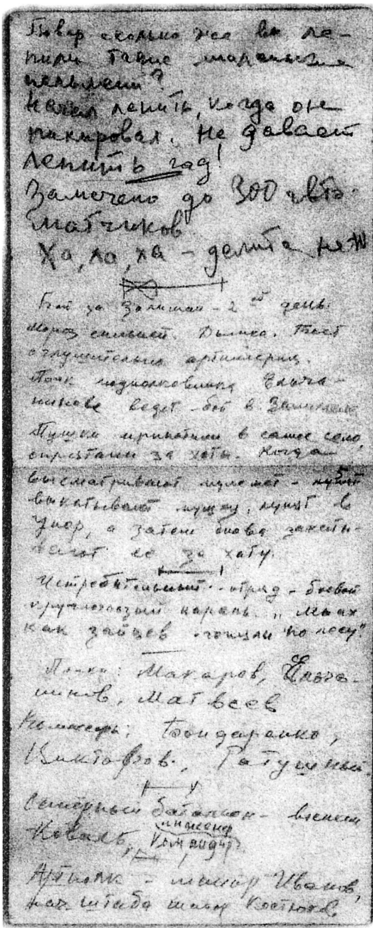 Повар сколько же вы ле-
пили такие маленькие
пельмени?
Начал лепить, когда он
пикировал. Не давает
лепить, гад!
Замечено до 300 авто-
матчиков
Ха, ха, ха – делите на
Бой за Залиман – 2ой день.
Мороз сильный. Дымка. Бьет
оглушительно артиллерия.
Полк подполковника Ельча-
нинова ведет бой в Залимане
Пушки притащили в самое село,
спрятали за хаты. Когда
высматривают пулемет –
выкатывают пушку, лупят в
упор, а затем снова закаты-
вают ее за хату.
Истребительный отряд – боевой
круглоглазый парень „
как зайцев гоняли по лесу"
Макаров, Ельча-
нинов, Матвеев
Комиссары: Бондаренко,
Саперный батальон –
Коваль, инженер
командир
Артполк – майор Иванов,
нач штаба Костюков